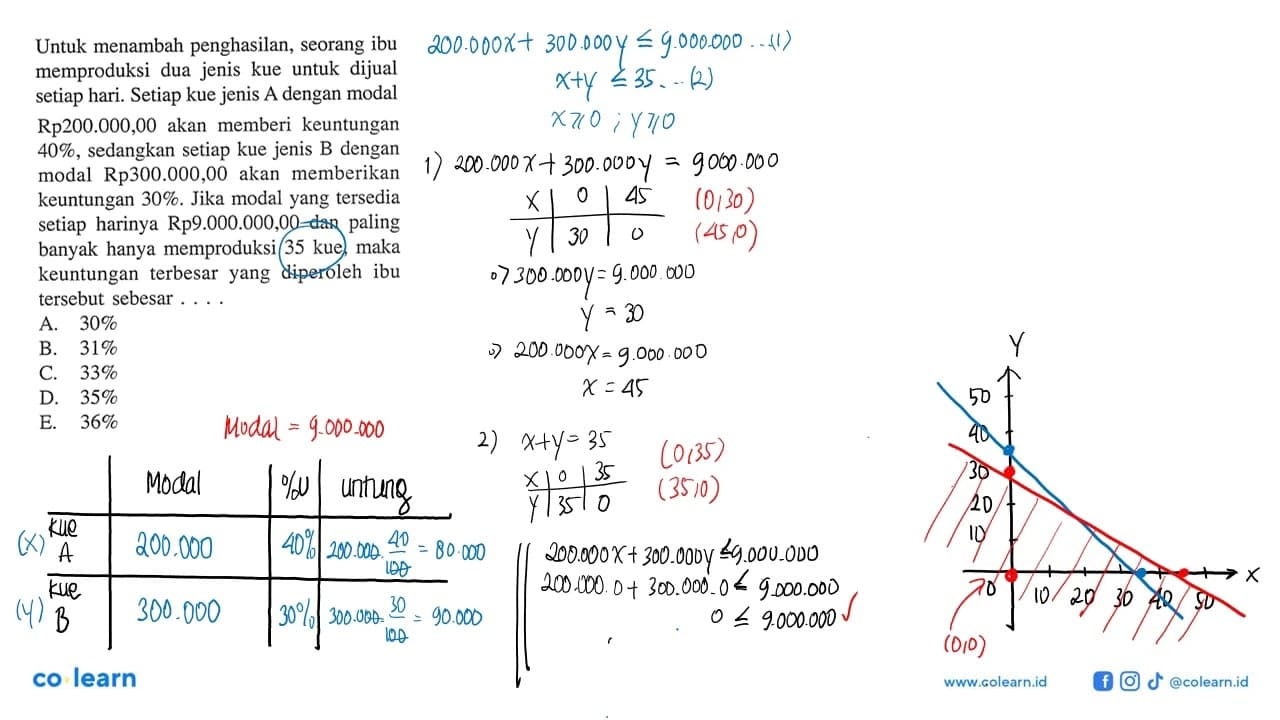 Untuk menambah penghasilan, seorang ibu
memproduksi dua jenis kue untuk dijual
setiap hari. Setiap kue jenis A dengan modal
Rp200.000,00 akan memberi keuntungan
40%, sedangkan setiap kue jenis B dengan
modal Rp300.000,00 akan memberikan
keuntungan 30%. Jika modal yang tersedia
setiap harinya Rp9.000.000,00 dan paling
banyak hanya memproduksi 35 kue, maka
keuntungan terbesar yang diperoleh ibu
tersebut sebesar . . . .
A. 30%
B. 31%
C. 33%
D. 35%
E. 36%
Modal = 9.000.000
Modal %U untung
(x) kue A 200.000 40% 200.000. 40/100 = 80.000
(y) kue B 300.000 30% 300.000. 30/100 = 90.000
200.000x + 300.000y ≤ 9.000.000 ...(1)
x+y ≤ 35 ...(2)
x ≥ 0 ; y ≥ 0
1) 200.000x + 300.000y = 9000.000
x 0 45 (0,30)
y 30 0 (45,0)
300.000y = 9.000.000
y = 30
200.000x = 9.000.000
x = 45
2) x+y = 35 (0,35)
x 0 35 (35,0)
y 35 0
200.000x + 300.000y ≤ 9.000.000
200.000.0 + 300.000.0 ≤ 9.000.000
0 ≤ 9.000.000 ✓
Y
50
40
30
20
10
0 10 20 30 40 50 X
(0,0)
co learn
www.colearn.id @colearn.id